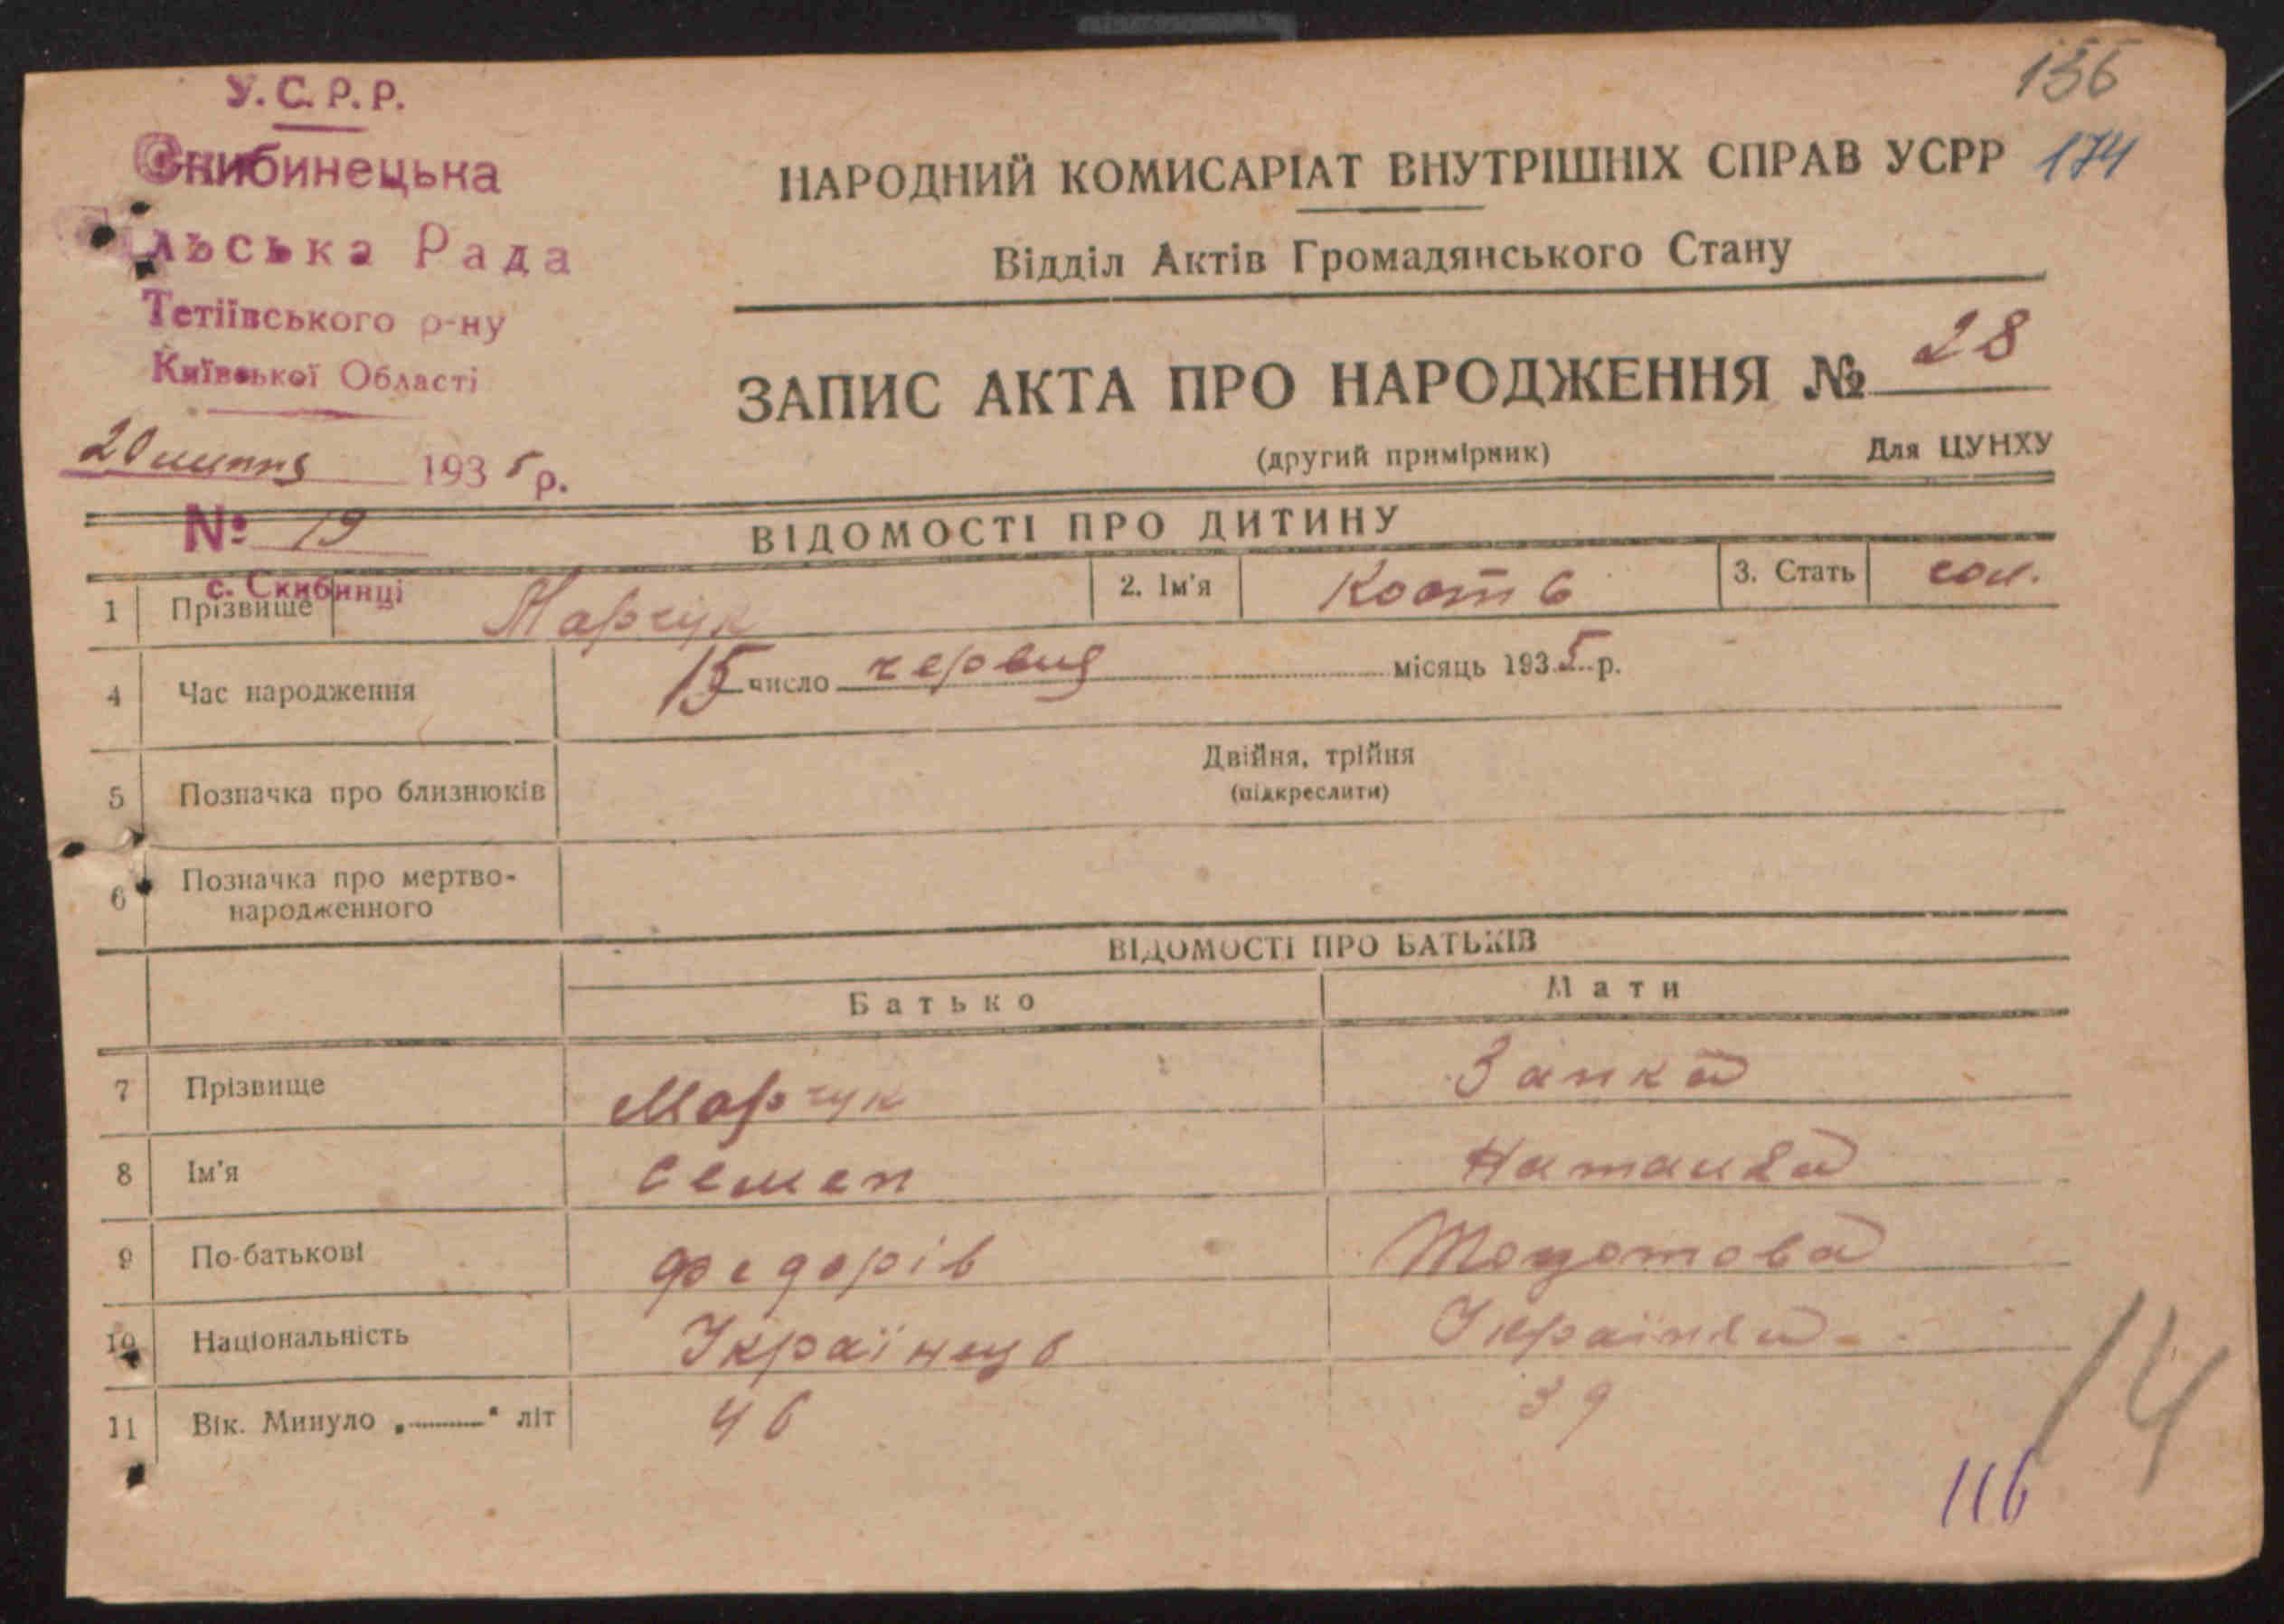 136
174
У.С.Р.Р.
Скибинецька
льська Рада
Тетіївського р-ну
Київської Області
20 липня 1935 р.
№ 19
с. Скибинці
НАРОДНИЙ КОМИСАРІАТ ВНУТРІШНІХ СПРАВ УСРР
Відділ Актів Громадянського Стану
ЗАПИС АКТА ПРО НАРОДЖЕННЯ № 28
(другий примірник) Для ЦУНХУ
ВІДОМОСТІ ПРО ДИТИНУ
1 Прізвище Марчук 2. Ім'я Кость 3. Стать
4 Час народження 15 число червня місяць 1935 р.
5 Позначка про близнюків Двійня, трійня
(підкреслити)
6 Позначка про мертво-
народженного
ВІДОМОСТІ ПРО БАТЬКІВ
Батько Мати
7 Прізвище Марчук Заика
8 Ім'я Семен Наталка
9 По-батькові Федорів
10 Національність Українець Українка
11 Вік. Минуло „ “ літ 46 39
14
116